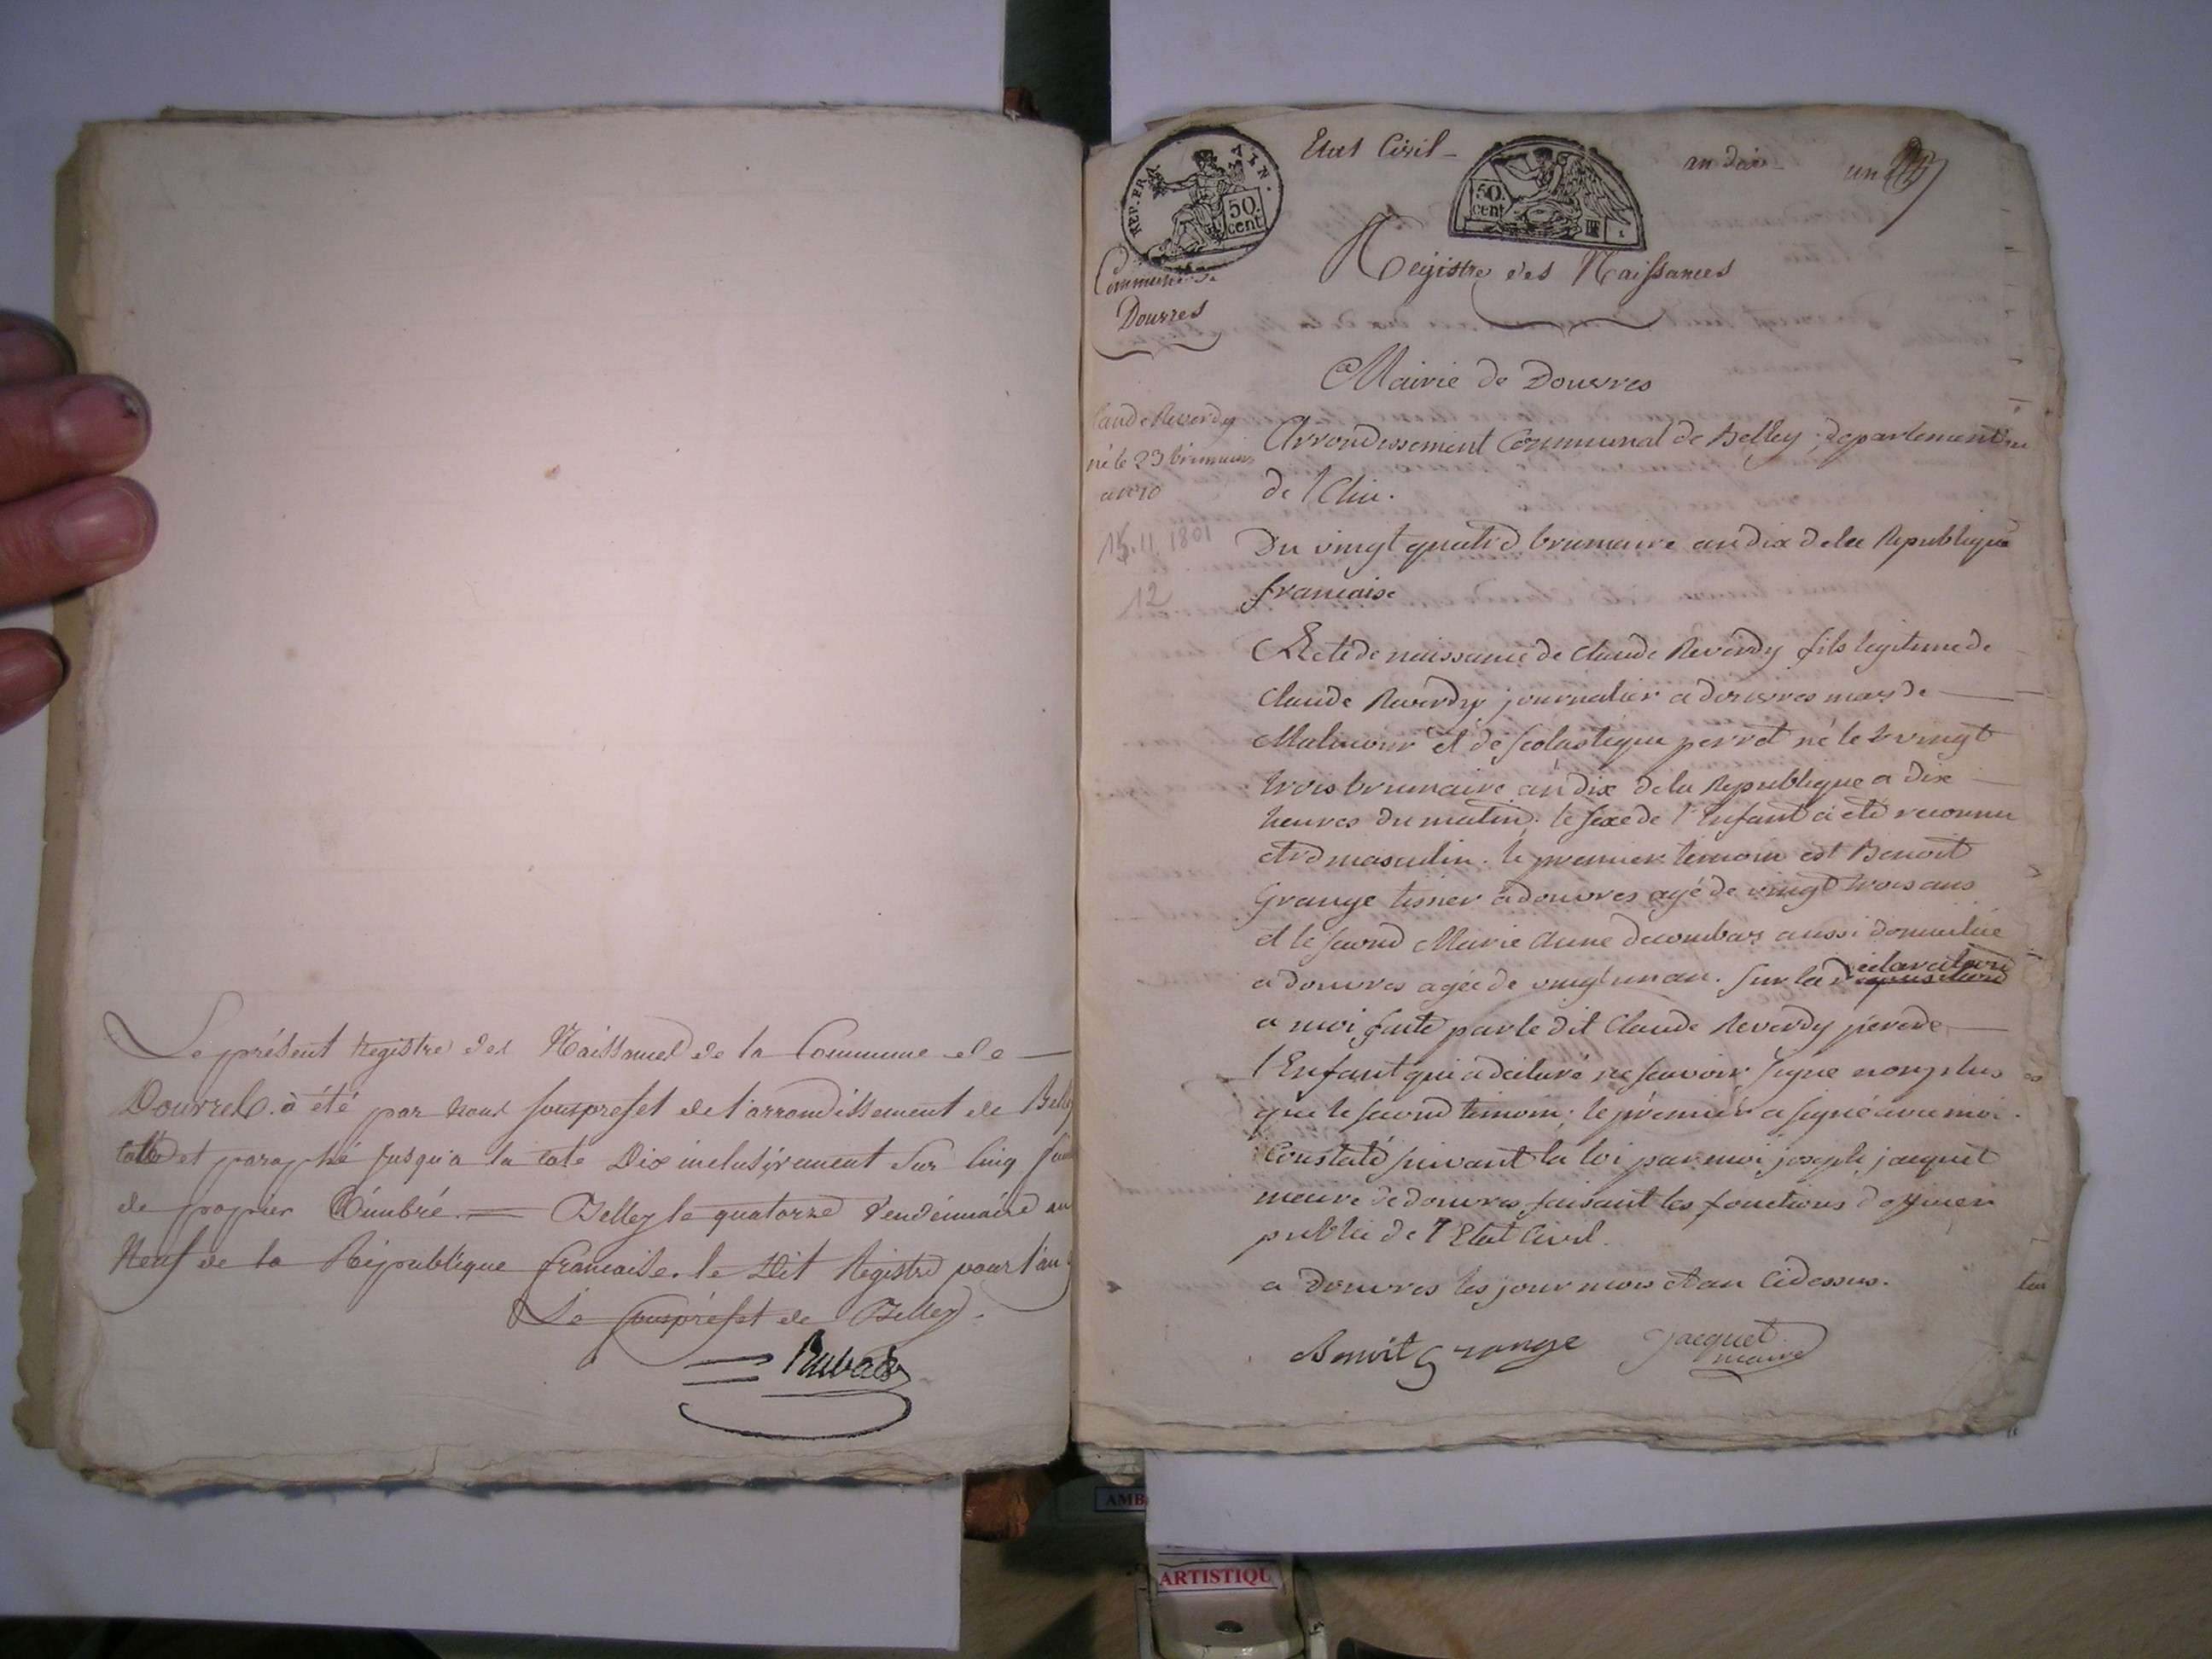 Le présent Registre des Naissances de la Commune de
Douvres a été par Nous souspréfet de l'arrondissement de Belley
cotté et paraphé jusqu'a la cote Dix inclusivement sur cinq
de papier timbré. = Belley le quatorze Vendémiaire an
Neuf de la République française. le Dit Registre pour l'an
Le souspréfet de Belley.
REP. FRA
50.
cent
Etat Civil
50.
cent
an dix
un
Commune de
Douvres
Registre des Naissances
Mairie de Douvres
Claude Reverdy
né le 23 brumaire
an 10
15.11.1801
12
Arrondissement Communal de Belley; departement
de l'Ain.
Du vingt quatre brumaire an dix de la Republique
francaise
Acte de naissance de Claude Reverdy fils legitime de
Claude Reverdy journalier a douvres mas de
Malincour et de scolastique perret né le vingt
trois brumaire an dix de la Republique a dix
heures du matin. le sexe de l'Enfant a eté reconnu
etre masculin. le premier temoin est Benoit
Grange tissier a douvres agé de vingt trois ans
et le second Marie Anne decombas aussi domiciliée
a douvres agée de vingt un an. sur la declaration
a moi faite par le dit Claude Reverdy pere de
l'Enfant qui a declaré ne scavoir signe non plus
que le second temoin; le premier a signé avec moi.
Constaté suivant la loi par moi joseph jacquet
maire de douvres faisant les fonctions d'officier
public de l'Etat Civil.
a Douvres les jour mois et an Cidessus.
Benoit Grange
Jacquet
maire
AMB
ARTISTIQU